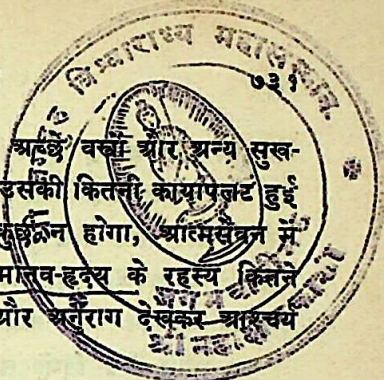 विश्वाराध्य महासंस्थान.
७३१
अच्छे वस्त्रों और अन्य सुख-
उसकी कितनी कायापलट हुई
न होगा, आत्मसेवन में
मानव-हृदय के रहस्य कितने
और अनुराग देखकर आश्चर्य